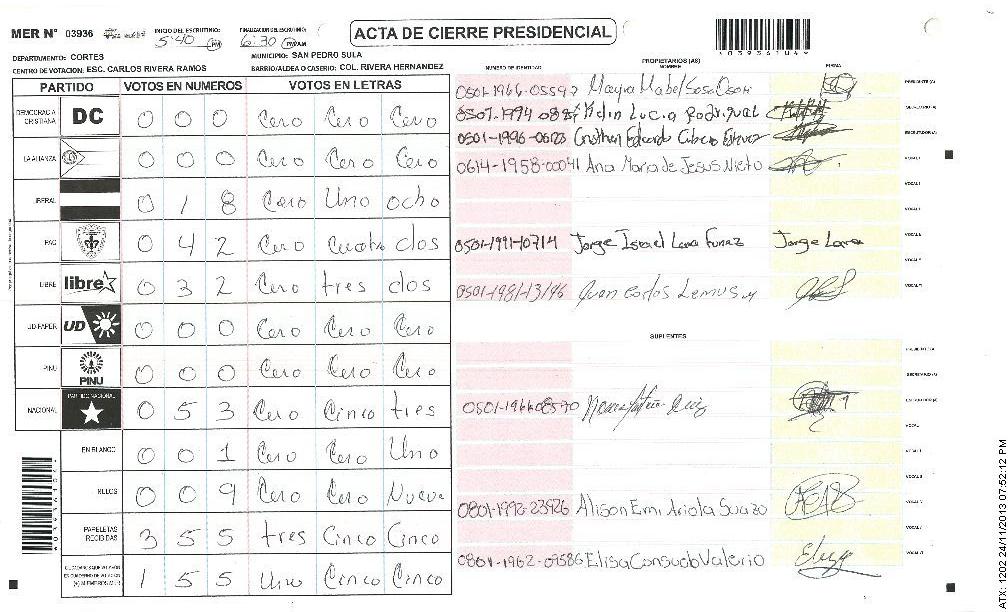 MER N° 03936
INICIO DEL ESCRUTINIO: 5:40 PM
FINALIZACION DEL ESCRUTINIO: 6:30 PM/AM
ACTA DE CIERRE PRESIDENCIAL
DEPARTAMENTO: CORTES
MUNICIPIO: SAN PEDRO SULA
CENTRO DE VOTACION: ESC. CARLOS RIVERA RAMOS
BARRIO/ALDEA O CASERIO: COL. RIVERA HERNANDEZ
PARTIDO VOTOS EN NUMEROS VOTOS EN LETRAS
DEMOCRACIA CRISTIANA DC 0 0 0 Cero Cero Cero
LA ALIANZA 0 0 0 Cero Cero Cero
LIBERAL 0 1 8 Cero Uno ocho
PAC 0 4 2 Cero Cuatro dos
LIBRE libre 0 3 2 Cero tres dos
UD/FAPER UD 0 0 0 Cero Cero Cero
PINU PINU 0 0 0 Cero Cero Cero
NACIONAL PARTIDO NACIONAL 0 5 3 Cero Cinco tres
EN BLANCO 0 0 1 Cero Cero Uno
NULOS 0 0 9 Cero Cero Nueve
PAPELETAS RECIBIDAS 3 5 5 tres Cinco Cinco
1 5 5 Uno Cinco Cinco
NUMERO DE IDENTIDAD
PROPIETARIOS (AS)
NOMBRE
FIRMA
0501-1966-05592 Mayra Mabel Sosa Osori
PRESIDENTE(A)
Lucia Rodriguez
SECRETARIO(A)
Eduardo
ESCRUTADOR(A)
0614-1958-00041 Ana Maria de Jesus Nieto
VOCAL I
0501-1991-10714 Jorge Isrrael Lara Funez Jorge Lara
0501-1981-13196 Juan Carlos Lemus
SUPLENTES
PRESIDENTE(A)
SECRETARIO(A)
ESCRUTADOR(A)
0801-1992-23926 Alison Emi Ariola Suazo
0801-1962-09586 Elisa Consuelo Valerio
ATX: 1202 24/11/2013 07:52:12 PM